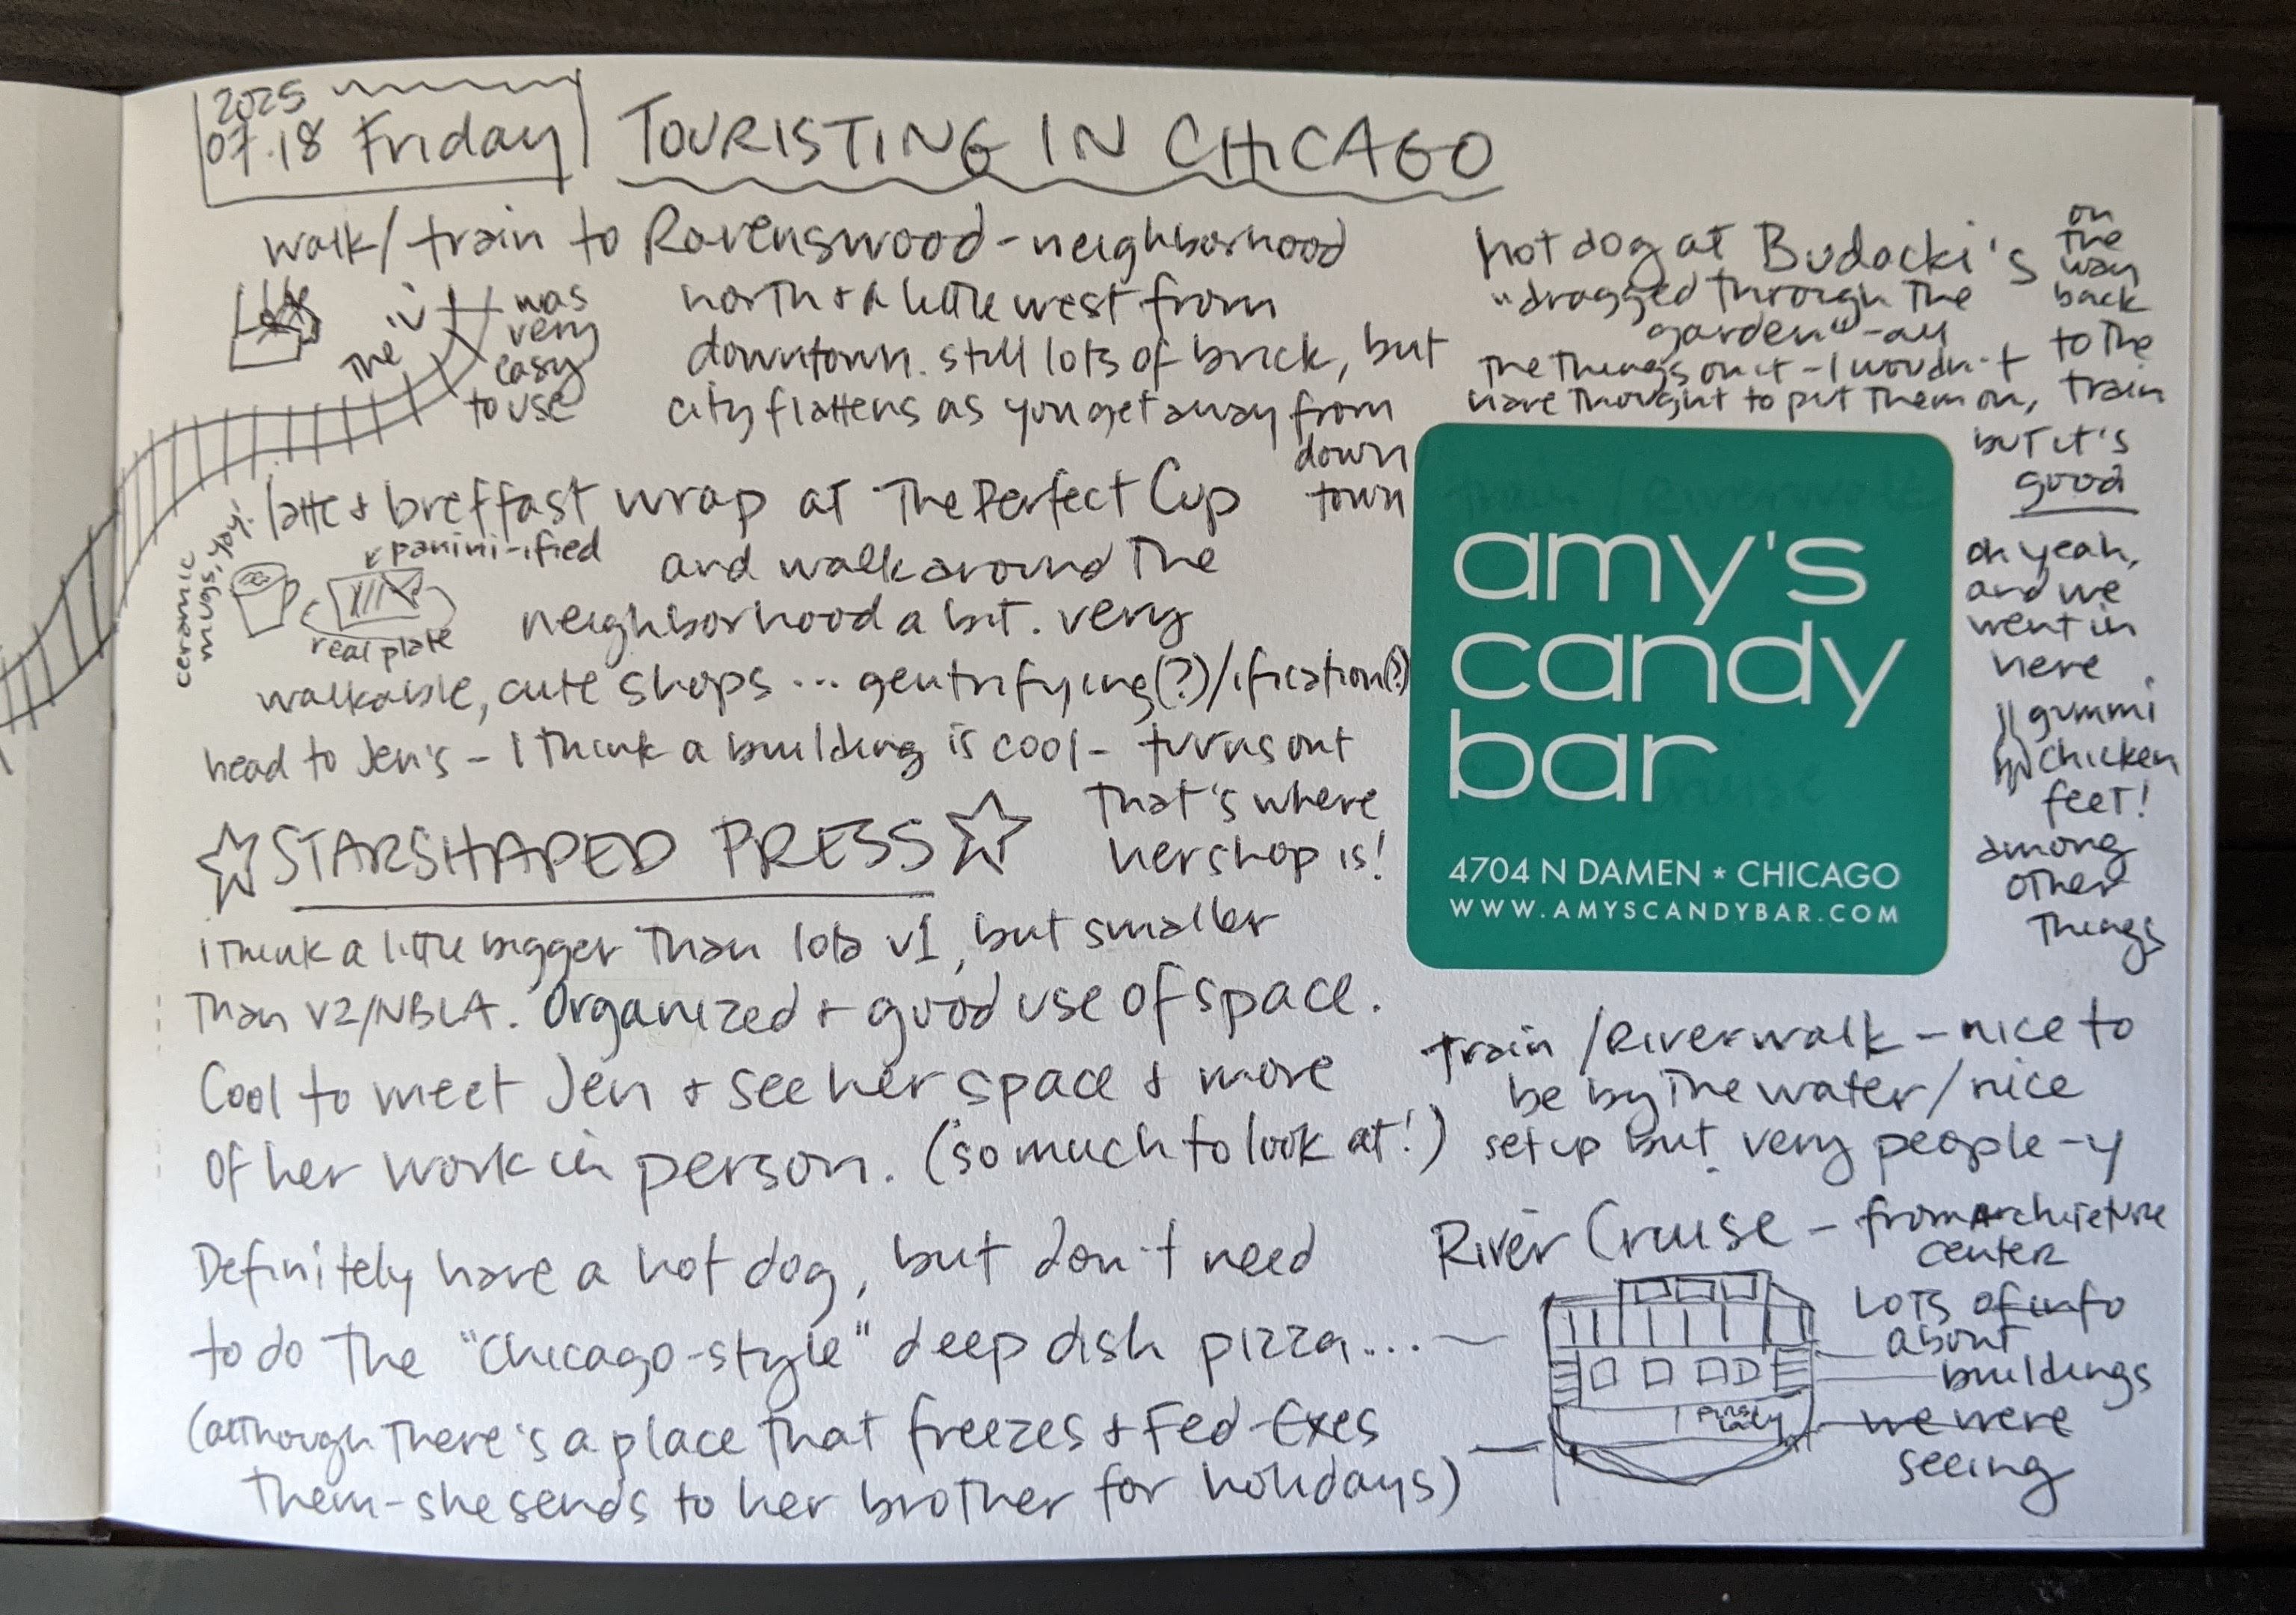 2025
07.18 Friday
TOURISTING IN CHICAGO
walk/train to Ravenswood-neighborhood
north + a little west from
downtown. still lots of brick, but
city flattens as you get away from
down
town
The "L" was
very
easy
to use
latte + breffast wrap at The Perfect Cup
ceramic
mugs, yay!
panini-ified
real plate
and walk around the
neighborhood a bit. very
walkable, cute shops ... gentrifying(?)/ification(?)
head to Jen's - I think a building is cool - turns out
that's where
her shop is!
STARSHAPED PRESS
I think a little bigger than lola v1, but smaller
than v2/NBLA. Organized + good use of space.
Cool to meet Jen + see her space + more
of her work in person. (so much to look at!)
Definitely have a hot dog, but don't need
to do the "Chicago-style" deep dish pizza...
(although there's a place that freezes + Fed-Exes
them - she sends to her brother for holidays)
hot dog at Budacki's
"dragged through the
garden" - all
the things on it - I wouldn't
have thought to put them on,
but it's
good
on
the
way
back
to the
train
amy's
candy
bar
4704 N DAMEN * CHICAGO
WWW.AMYSCANDYBAR.COM
oh yeah,
and we
went in
here
gummi
chicken
feet!
among
other
things
train/Riverwalk - nice to
be by the water/nice
set up but very people-y
River Cruise - from Architeture
center
Lots of info
about
buildings
we were
seeing
First
Lady